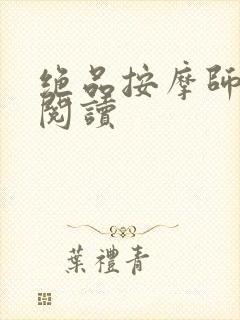 绝品按摩師
閱讀
葉禮青